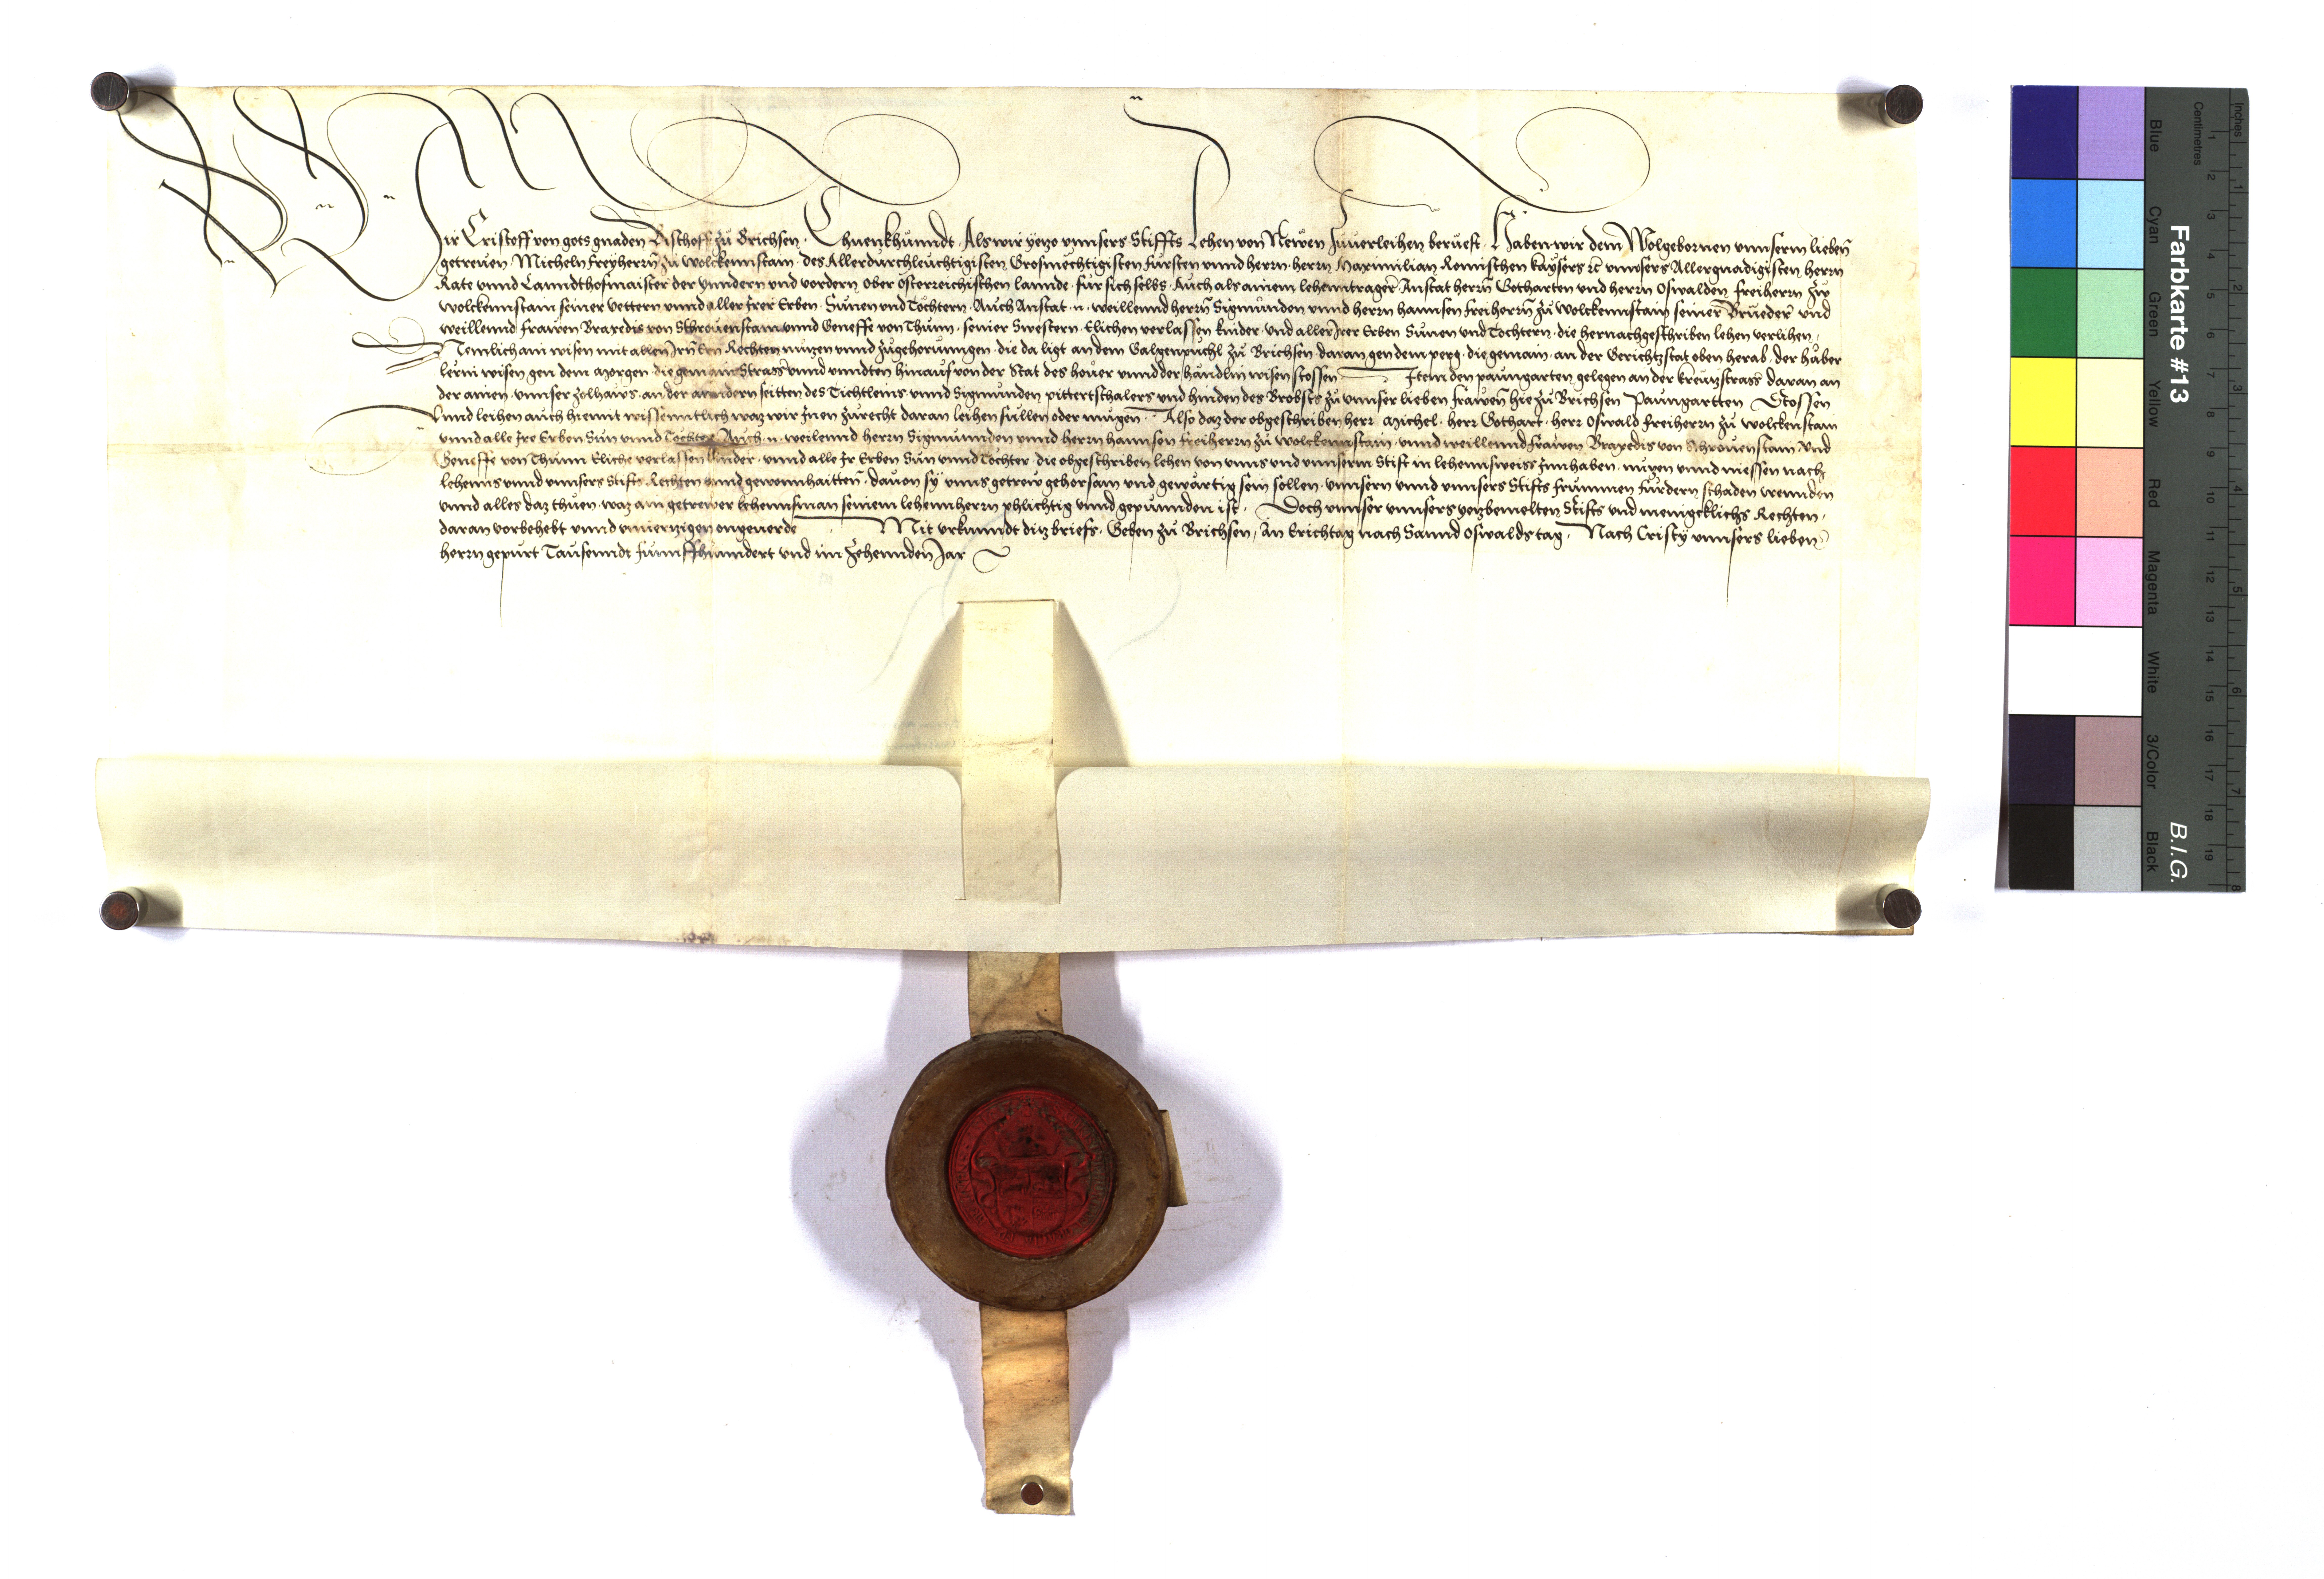 Wir Cristoff von gots gnaden Bischoff zu Brichsen · Thuenkhunndt · Als wir yetzo vnnsers Stiffts Lehen von Newen zuuerleihen berueft · Haben wir dem Wolgebornen vnnserm lieben
getreuen · Micheln freyherrn zu wolckennstain · des Allerdurchleuchtigisten Grosmechtigisten fursten vnnd herrn · herrn Maximilian Romischen kaysers rc vnnsers Allergnadigisten herrn
Rate vnnd Lanndthofmaister der ynndern vnd vordern ober osterreichischen lannde · fur sich selbs · Auch als ainem lehenntrager Anstat herrn Gotharten vnd herrn Oswalden freiherrn zw
wolckennstain seiner vettern vnnd aller Irer Erben · Sunen vnd Tochtern · Auch Anstat n · weillennd herrn Sigmunden vnnd herrn hannsen freiherrn zu wolckennstain seiner Brueder vnd
weillennd frawen Braxedis von Schrouenstain vnnd Geneffe von Thunn · seiner Swestern · Elichen verlassen kinder · vnd aller Irer Erben Sunen vnd Tochtern · die hernachgeschriben lehen verlihen ·
Nemlich ain wisen mit allen Rechten nutzen vnnd zugehorunngen · die da ligt an dem Galgenpuchl zu Brichsen · daran gen dem perg · die gemain · an der Gerichtzstat oben herab · der haber
lerin wisen gen dem morgen · die gemain Strass vnnd vnndten hinauf von der Stat des houer vnnd der handlin wisen stossen Item den paungarten gelegen an der kreutzstrass daran an
der ainen · vnnser zolhaws · an der anndern seitten des Tichtleins · vnnd Sigmunden pittertschalers vnd hinden des Brobsts zu vnnser lieben frawen hie zu Brichsen Paungartten Stossen
vnnd leihen auch hiemit wissenntlich waz wir Inen zurecht daran leihen sullen oder mugen Also daz der obgeschriben herr Michel · herr Gothart · herr Oswald freiherrn zu wolckenstain
vnnd alle Ire Erben Sun vnnd Tochter Auch n · weilennd herrn Sigmunnden vnnd herrn hannsen freiherrn zu wolckennstain · vnnd weillennd frawen Braxedis von Schrouenstain · vnd
Geneffe von Thunn Eliche verlassen kinder · vnnd alle Ir Erben Sun vnnd Tochter · die obgeschriben lehen von vnns vnd vnnserm Stift in lehennsweiss Innhaben · nutzen vnnd niessen nach
lehenns vnnd vnnsers Stifts Rechten vnnd gewonnhaitten · dauon sy vnns getrew gehorsam vnd gewartig sein sollen · vnnsern vnnd vnnsers Stifts frummen furdern schaden wennden
vnnd alles daz thuen · waz ain getrewer lehennsman seinem lehennherrn phlichtig vnnd gepunnden ist · Doch vnnser vnnsers yetzbemelten Stifts vnd menigclichs Rechten ·
daran vorbehebt vnnd vnuerzigen ongeuerde Mit vrkunndt ditz briefs · Geben zu Brichsen · An Erichtag nach Sannd Oswalds tag · Nach Cristy vnnsers lieben
herrn gepurt Tausenndt funnffhunndert vnd im zehennden Jar
Farbkarte #13
B.I.G.
Blue
Cyan
Green
Yellow
Red
Magenta
White
3/Color
Black
Centimetres
Inches
1 2 3 4 5 6 7 8 9 10 11 12 13 14 15 16 17 18 19
1 2 3 4 5 6 7 8